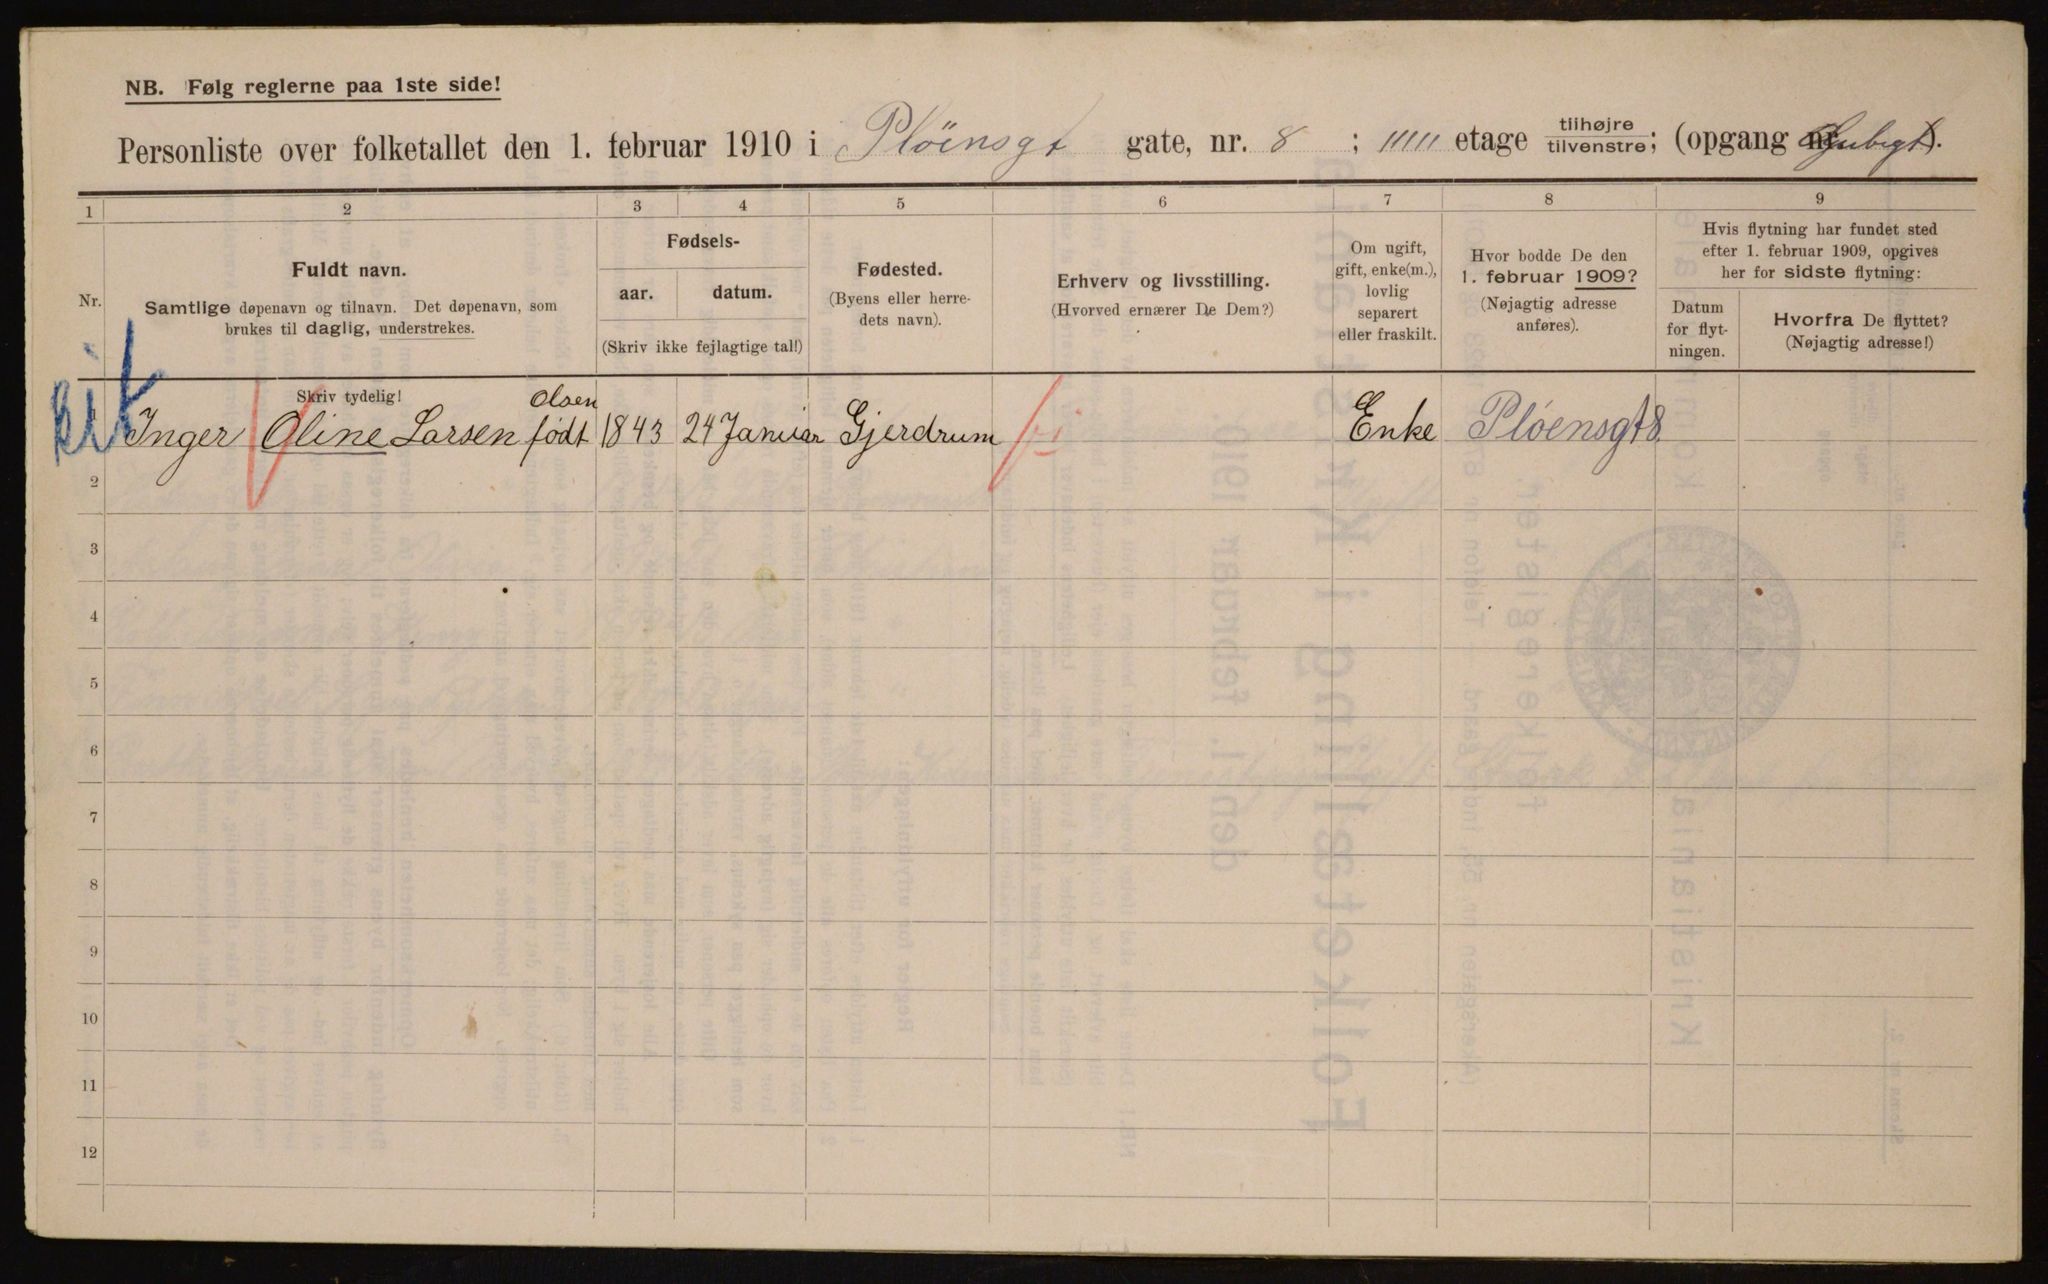 NB. Følg reglerne paa 1ste side!
Personliste over folketallet den 1. februar 1910 i Plöensgt gate, nr. 8 ; etage tilhøjre tilvenstre; (opgang nr. ).
1 2 3 4 5 6 7 8 9
Nr.
Fuldt navn.
Samtlige døpenavn og tilnavn. Det døpenavn, som
brukes til daglig, understrekes.
Fødsels-
aar. datum.
(Skriv ikke fejlagtige tal!)
Fødested.
(Byens eller herre-
dets navn).
Erhverv og livsstilling.
(Hvorved ernærer De Dem?)
Om ugift,
gift, enke(m.),
lovlig
separert
eller fraskilt.
Hvor bodde De den
1. februar 1909?
(Nøjagtig adresse
anføres).
Hvis flytning har fundet sted
efter 1. februar 1909, opgives
her for sidste flytning:
Datum
for flyt-
ningen.
Hvorfra De flyttet?
(Nøjagtig adresse!)
Skriv tydelig!
Olsen
Inger Oline Larsen født 1843 24 Januar Gjerdrum Enke Plöensgt 8
2
3
4
5
6
7
8
9
10
11
12